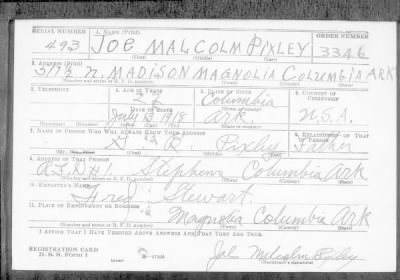 SERIAL NUMBER 1. NAME (Print) ORDER NUMBER
493 JOE MALCOLM PIXLEY 3346
(First) (Middle) (Last)
2. ADDRESS (Print)
317½ N. MADISON MAGNOLIA COLUMBIA ARK
(Number and street or R. F. D. number) (Town) (County) (State)
3. TELEPHONE 4. AGE IN YEARS 5. PLACE OF BIRTH 6. COUNTRY OF CITIZENSHIP
Columbia
DATE OF BIRTH
July 18 1918 Ark U.S.A.
7. NAME OF PERSON WHO WILL ALWAYS KNOW YOUR ADDRESS 8. RELATIONSHIP OF THAT PERSON
R. Pixley Father
9. ADDRESS OF THAT PERSON
R.F.D. Stephens Columbia Ark
(Number and street or R. F. D. number) (Town) (County) (State)
10. EMPLOYER'S NAME
Fred Stewart.
11. PLACE OF EMPLOYMENT OR BUSINESS
Magnolia Columbia Ark
(Number and street or R. F. D. number) (Town) (County) (State)
I AFFIRM THAT I HAVE VERIFIED ABOVE ANSWERS AND THAT THEY ARE TRUE.
REGISTRATION CARD
D. S. S. Form 1
Joe Malcolm Pixley
(Registrant's signature)